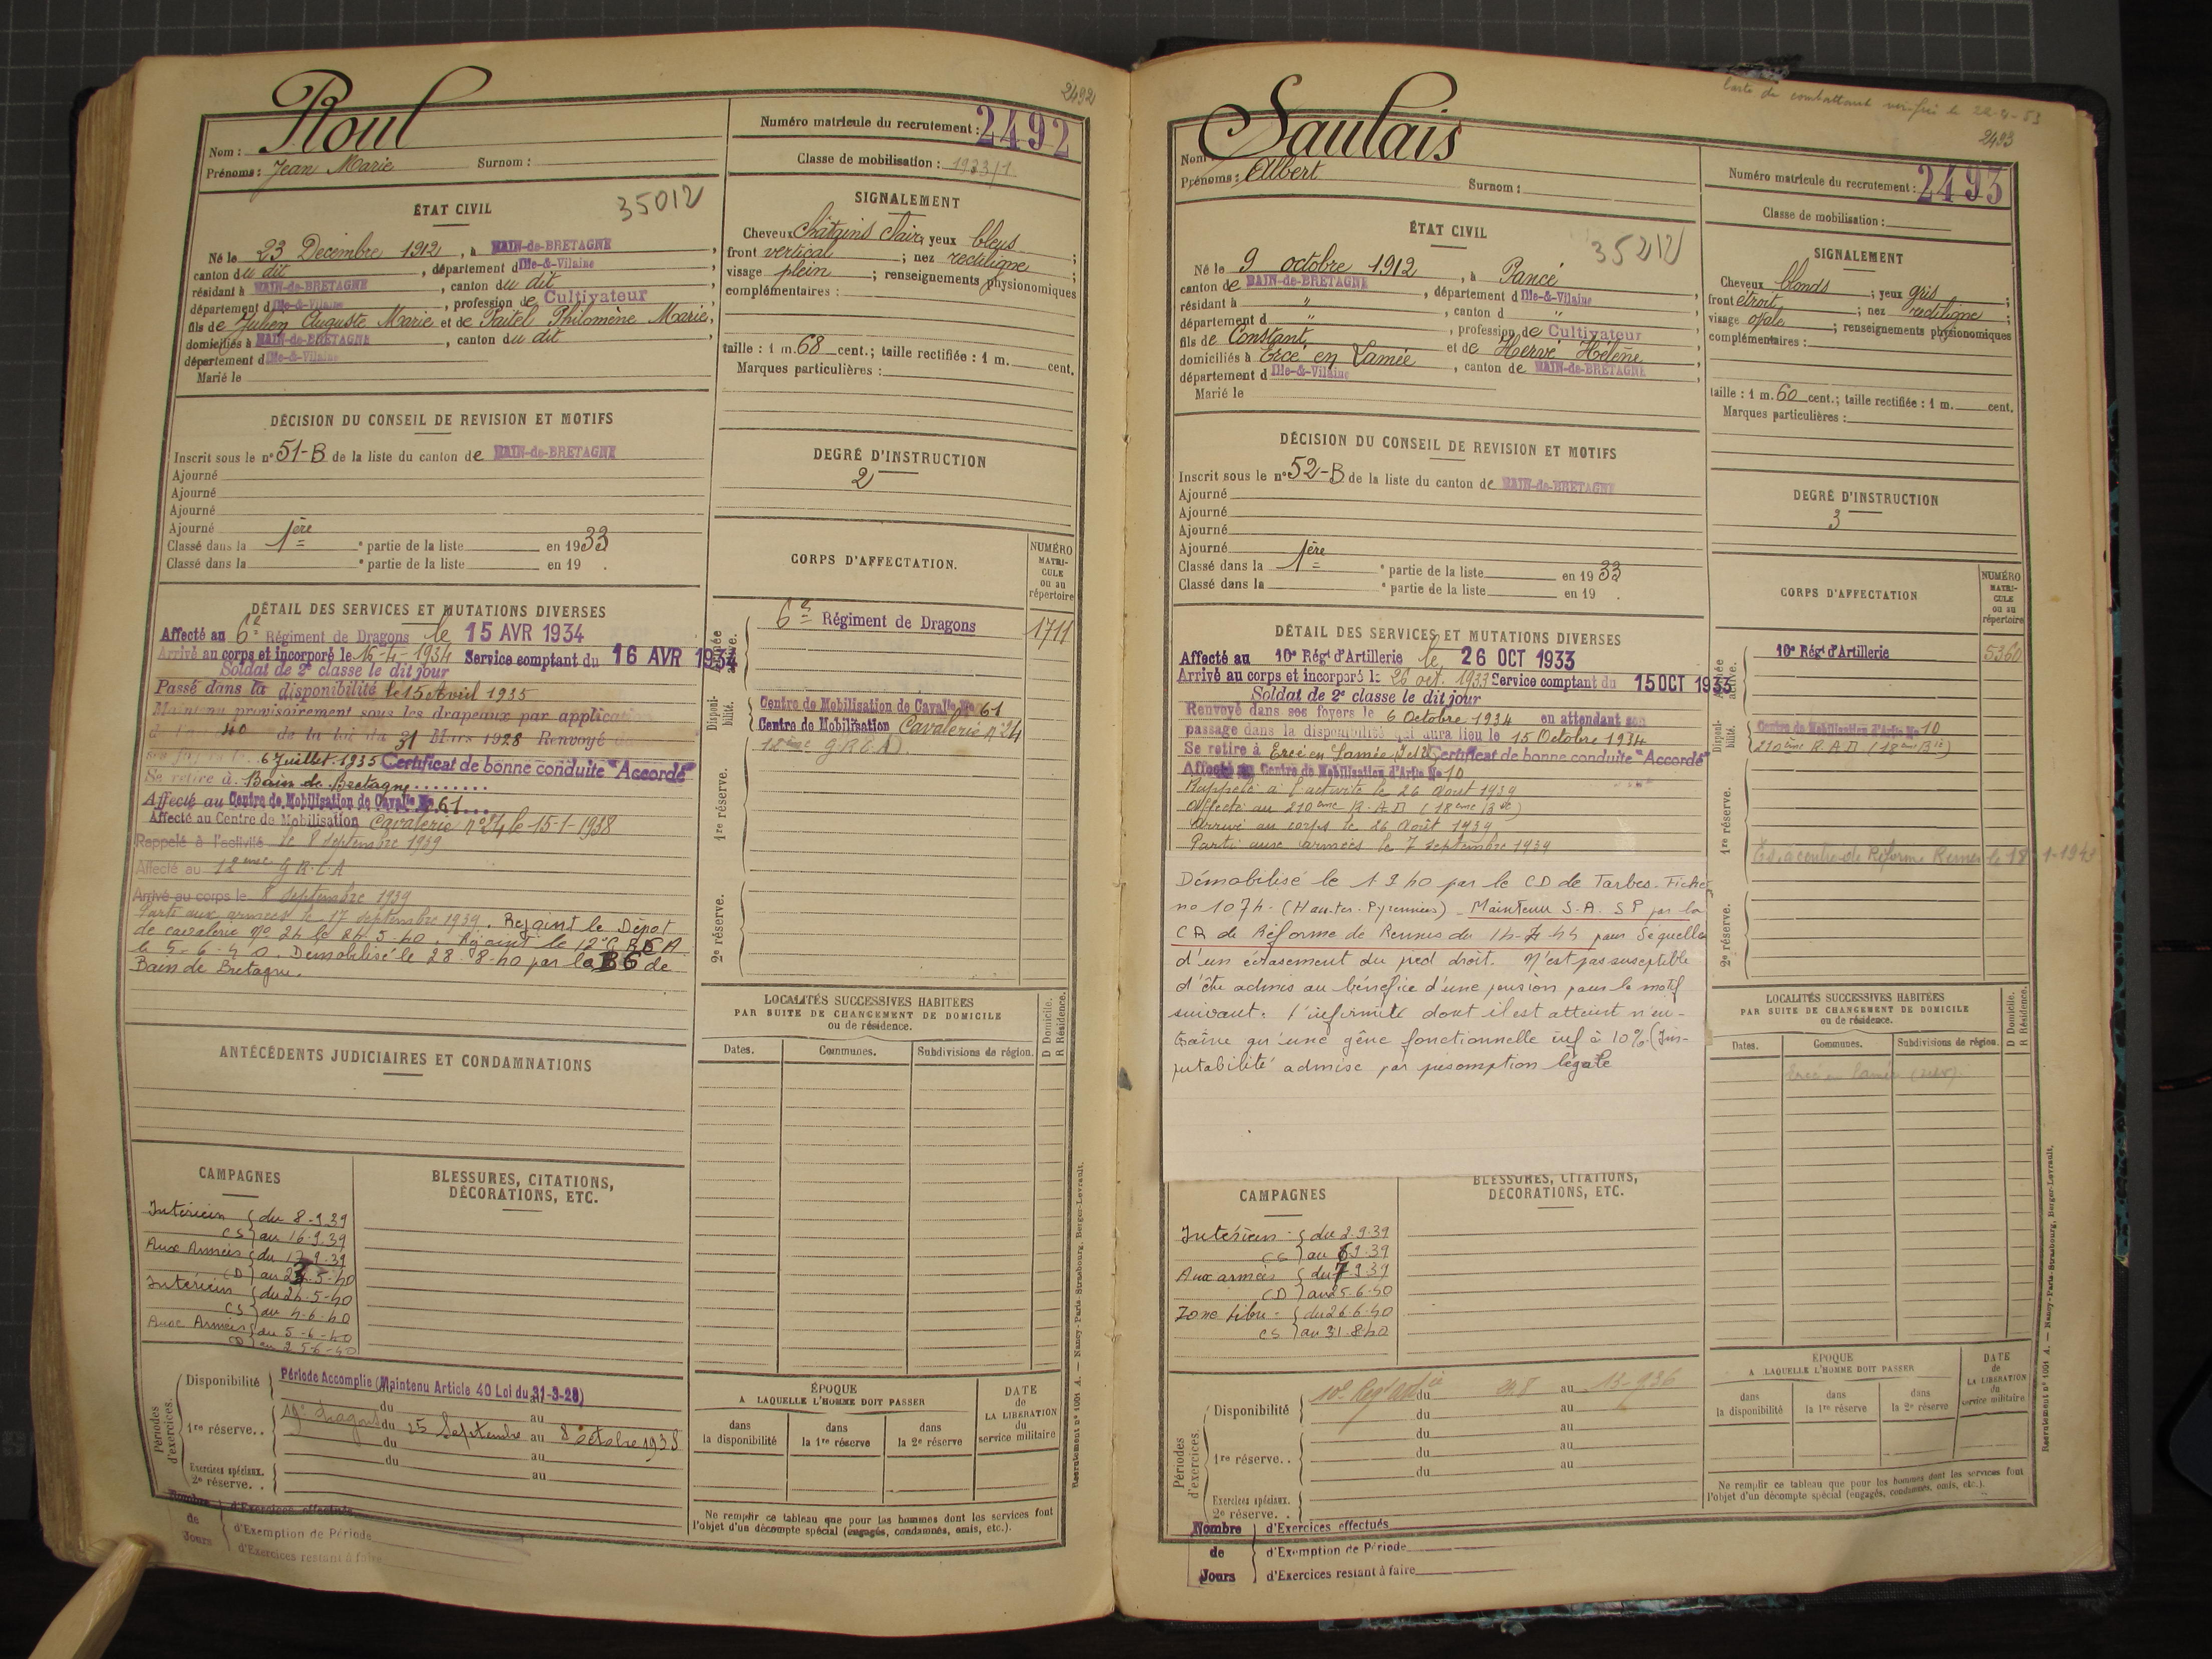 2492
Roul
Nom :
Prénoms : Jean Marie Surnom :
Numéro matricule du recrutement : 2492
Classe de mobilisation : 1933/1
ÉTAT CIVIL
35012
Né le 23 Décembre 1912, à BAIN-de-BRETAGNE,
canton du dit, département d Ille-&-Vilaine,
résidant à BAIN-de-BRETAGNE, canton du dit,
département d Ille-&-Vilaine, profession de Cultivateur
fils de Julien Auguste Marie et de Paitel Philomène Marie,
domiciliés à BAIN-de-BRETAGNE, canton du dit
département d Ille-&-Vilaine
Marié le
SIGNALEMENT
Cheveux Châtains clairs yeux bleus ;
front vertical ; nez rectiligne ;
visage plein ; renseignements physionomiques
complémentaires :
taille : 1 m. 68 cent.; taille rectifiée : 1 m. cent.
Marques particulières :
DÉCISION DU CONSEIL DE REVISION ET MOTIFS
Inscrit sous le n° 51-B de la liste du canton de BAIN-de-BRETAGNE
Ajourné
Ajourné
Ajourné
Ajourné
Classé dans la 1ère partie de la liste en 1933
Classé dans la partie de la liste en 19 .
DEGRÉ D'INSTRUCTION
2
DÉTAIL DES SERVICES ET MUTATIONS DIVERSES
Affecté au 6e Régiment de Dragons le 15 AVR 1934
Arrivé au corps et incorporé le 16-4-1934 Service comptant du 16 AVR 1934
Soldat de 2e classe le dit jour
Passé dans la disponibilité le 15 Avril 1935
Maintenu provisoirement sous les drapeaux par application
de l'art 40 de la loi du 31 Mars 1928 Renvoyé dans
ses foyers le 6 Juillet 1935 Certificat de bonne conduite "Accordé"
Se retire à Bain de Bretagne
Affecté au Centre de Mobilisation de Cavalie No 61
Affecté au Centre de Mobilisation Cavalerie n°24 le 15-1-1938
Rappelé à l'activité le 8 septembre 1939
Affecté au 12ème G.R.C.A
Arrivé au corps le 8 septembre 1939
Parti aux armées le 17 septembre 1939. Rejoint le Dépot
de cavalerie n° 24 le 24-5-40. Rejoint le 12e G.R.C.A
le 5-6-40. Démobilisé le 28-8-40 par la B G de
Bain de Bretagne.
CORPS D'AFFECTATION.
NUMÉRO MATRI-CULE ou au répertoire
Armée active.
6e Régiment de Dragons 1711
Disponibilité.
Centre de Mobilisation de Cavalie No 61
Centre de Mobilisation Cavalerie n°24
12ème G.R.C.A
1re réserve.
2e réserve.
ANTÉCÉDENTS JUDICIAIRES ET CONDAMNATIONS
LOCALITÉS SUCCESSIVES HABITÉES
PAR SUITE DE CHANGEMENT DE DOMICILE
ou de résidence.
D Domicile.
R Résidence.
Dates. Communes. Subdivisions de région.
CAMPAGNES
Intérieur { du 8-9-39
CS } au 16-9-39
Aux Armées { du 17-9-39
CD } au 23-5-40
Intérieur { du 24-5-40
CS } au 4-6-40
Aux Armées { du 5-6-40
CD } au 25-6-40
BLESSURES, CITATIONS,
DÉCORATIONS, ETC.
Périodes d'exercices.
Disponibilité Période Accomplie (Maintenu Article 40 Loi du 31-3-28)
du au
1re réserve.. 19e Dragons du 25 Septembre au 8 Octobre 1938
du au
du au
Exercices spéciaux.
2e réserve. .
Nombre de Jours
d'Exercices effectués
d'Exemption de Période
d'Exercices restant à faire
ÉPOQUE
A LAQUELLE L'HOMME DOIT PASSER
dans la disponibilité
dans la 1re réserve
dans la 2e réserve
DATE de LA LIBÉRATION du service militaire
Ne remplir ce tableau que pour les hommes dont les services font
l'objet d'un décompte spécial (engagés, condamnés, omis, etc.).
Recrutement n° 1001 A. — Nancy-Paris-Strasbourg, Berger-Levrault.
Carte du combattant vérifié le 22-4-53
2493
Saulais
Nom :
Prénoms : Albert Surnom :
Numéro matricule du recrutement : 2493
Classe de mobilisation :
ÉTAT CIVIL
35212
Né le 9 octobre 1912, à Pancé
canton de BAIN-de-BRETAGNE, département d Ille-&-Vilaine,
résidant à ", canton d ",
département d ", profession de Cultivateur
fils de Constant, et de Hervé Hélène
domiciliés à Ercé en Lamée, canton de BAIN-de-BRETAGNE,
département d Ille-&-Vilaine
Marié le
SIGNALEMENT
Cheveux blonds ; yeux gris ;
front étroit ; nez rectiligne ;
visage ovale ; renseignements physionomiques
complémentaires :
taille : 1 m. 60 cent.; taille rectifiée : 1 m. cent.
Marques particulières :
DÉCISION DU CONSEIL DE REVISION ET MOTIFS
Inscrit sous le n° 52-B de la liste du canton de BAIN-de-BRETAGNE
Ajourné
Ajourné
Ajourné
Ajourné
Classé dans la 1ère partie de la liste en 1933
Classé dans la partie de la liste en 19 .
DEGRÉ D'INSTRUCTION
3
DÉTAIL DES SERVICES ET MUTATIONS DIVERSES
Affecté au 10e Régt d'Artillerie le 26 OCT 1933
Arrivé au corps et incorporé le 26 oct. 1933 Service comptant du 15 OCT 1933
Soldat de 2e classe le dit jour
Renvoyé dans ses foyers le 6 Octobre 1934 en attendant son
passage dans la disponibilité qui aura lieu le 15 Octobre 1934
Se retire à Ercé en Lamée (I et V) Certificat de bonne conduite "Accordé"
Affecté au Centre de Mobilisation d'Artie No 10
Rappelé à l'activité le 26 Août 1939
Affecté au 210ème R.A.D (18ème Bie)
Arrivé au corps le 26 Août 1939
Parti aux armées le 7 septembre 1939
Démobilisé le 1 9 40 par le CD de Tarbes. Fiche
no 1074. (Hautes-Pyrénées). Maintenu S.A. SP par la
CR de Réforme de Rennes du 14-7-44 pour Séquelles
d'un écrasement du pied droit. N'est pas susceptible
d'être admis au bénéfice d'une pension pour le motif
suivant: l'infirmité dont il est atteint n'en-
traîne qu'une gêne fonctionnelle inf à 10% (Im-
putabilité admise par présomption légale
CORPS D'AFFECTATION
NUMÉRO MATRI-CULE ou au répertoire
Armée active.
10e Régt d'Artillerie 5360
Disponibilité.
Centre de Mobilisation d'Artie No 10
210ème R.A.D (18ème Bie)
1re réserve.
centre de Réforme Rennes le 18-1-1943
2e réserve.
LOCALITÉS SUCCESSIVES HABITÉES
PAR SUITE DE CHANGEMENT DE DOMICILE
ou de résidence.
D Domicile.
R Résidence.
Dates. Communes. Subdivisions de région.
Ercé en Lamée
CAMPAGNES
Intérieur { du 2-9-39
CS } au 6-9-39
Aux armées { du 7-9-39
CD } au 25-6-40
Zone Libre { du 26-6-40
CS } au 31-8-40
BLESSURES, CITATIONS,
DÉCORATIONS, ETC.
Périodes d'exercices.
Disponibilité 10e Regt d'Artie du 24 8 au 13-9-36
du au
du au
1re réserve.. du au
du au
Exercices spéciaux.
2e réserve. .
Nombre de Jours
d'Exercices effectués
d'Exemption de Période
d'Exercices restant à faire
ÉPOQUE
A LAQUELLE L'HOMME DOIT PASSER
dans la disponibilité
dans la 1re réserve
dans la 2e réserve
DATE de LA LIBÉRATION du service militaire
Ne remplir ce tableau que pour les hommes dont les services font
l'objet d'un décompte spécial (engagés, condamnés, omis, etc.).
Recrutement n° 1001 A. — Nancy-Paris-Strasbourg, Berger-Levrault.